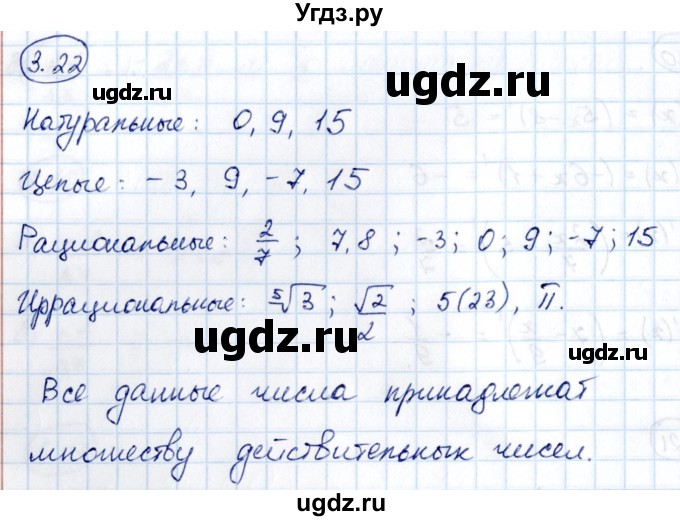 Угдз.ру
3.22
ugdz.ru
ugdz.ru
ugdz.ru
Натуральные: 0, 9, 15
Целые: -3, 9, -7, 15
ugdz.ru
Рациональные: 2/7; 7,8; -3; 0; 9; -7; 15
Иррациональные: ⁵√3; √2/2; 5(23), π.
ugdz.ru
ugdz.ru
ugdz.ru
Все данные числа принадлежат
множеству действительных чисел.
ugdz.ru
ugdz.ru
ugdz.ru